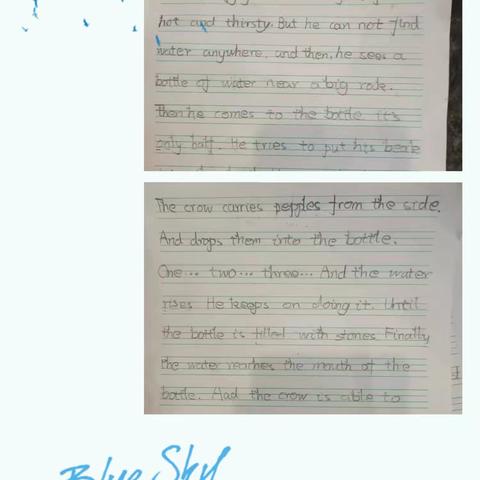 hot and thirsty. But he can not find
water anywhere, and then, he sees a
bottle of water near a big rock.
Then he comes to the bottle it's
only half. He tries to put his beak
The crow carries pepples from the side.
And drops them into the bottle.
One... two... three... And the water
rises He keeps on doing it. Until
the bottle is filled with stones. Finally
the water reaches the mouth of the
bottle. And the crow is able to
Blue Sky